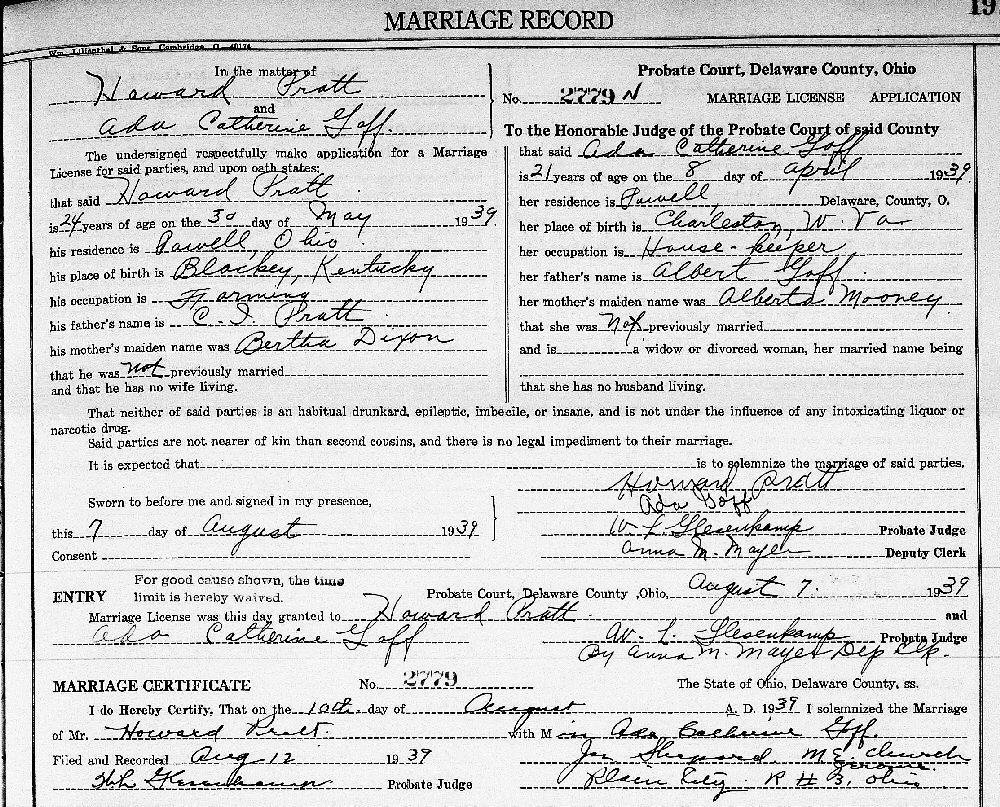 19
MARRIAGE RECORD
Wm. Lilienthal & Sons, Cambridge, O. 40174
In the matter of
Howard Pratt
and
Ada Catherine Goff.
The undersigned respectfully make application for a Marriage
License for said parties, and upon oath states:
that said Howard Pratt
is 24 years of age on the 30 day of May 1939
his residence is Powell, Ohio
his place of birth is Blackey, Kentucky
his occupation is Farming
his father's name is C. I. Pratt
his mother's maiden name was Bertha Dixon
that he was not previously married
and that he has no wife living.
Probate Court, Delaware County, Ohio
No. 2779 N MARRIAGE LICENSE APPLICATION
To the Honorable Judge of the Probate Court of said County
that said Ada Catherine Goff
is 21 years of age on the 8 day of April 1939
her residence is Powell, Delaware, County, O.
her place of birth is Charleston, W. Va
her occupation is House-keeper
her father's name is Albert Goff.
her mother's maiden name was Alberta Mooney
that she was Not previously married
and is a widow or divorced woman, her married name being
that she has no husband living.
That neither of said parties is an habitual drunkard, epileptic, imbecile, or insane, and is not under the influence of any intoxicating liquor or
narcotic drug.
Said parties are not nearer of kin than second cousins, and there is no legal impediment to their marriage.
It is expected that is to solemnize the marriage of said parties.
Howard Pratt
Ada Goff
Sworn to before me and signed in my presence,
this 7 day of August 1939
Consent
W L Glesenkamp Probate Judge
Anna M. Mayer Deputy Clerk
For good cause shown, the time
limit is hereby waived.
ENTRY Probate Court, Delaware County ,Ohio, August 7. 1939
Marriage License was this day granted to Howard Pratt and
Ada Catherine Goff W. L. Glesenkamp Probate Judge
By Anna M. Mayer Dep Clk.
MARRIAGE CERTIFICATE No. 2779 The State of Ohio, Delaware County, ss.
I do Hereby Certify, That on the 10th. day of August A. D. 1939 I solemnized the Marriage
of Mr. Howard Pratt. with Miss Ada Catherine Goff.
Filed and Recorded Aug 12 1939 Shepard, M.E. Church
Glesenkamp Probate Judge Plain City, R # 3, Ohio